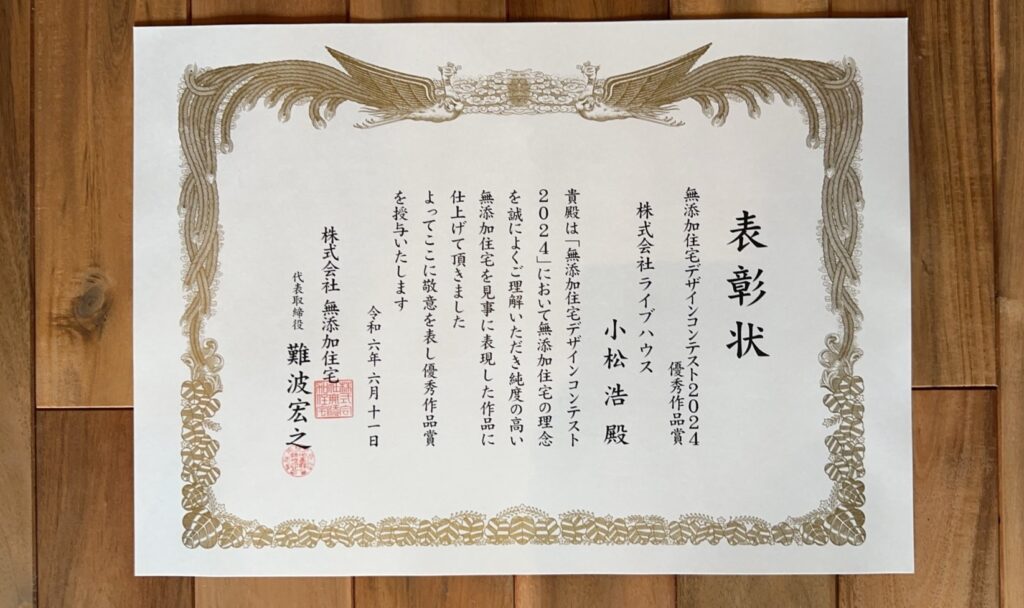 表彰状
無添加住宅デザインコンテスト2024
優秀作品賞
株式会社 ライブハウス
小松浩 殿
貴殿は「無添加住宅デザインコンテスト
2024」において無添加住宅の理念
を誠によくご理解いただき純度の高い
無添加住宅を見事に表現した作品に
仕上げて頂きました
よってここに敬意を表し優秀作品賞
を授与いたします
令和六年六月十一日
株式会社 無添加住宅
代表取締役 難波宏之